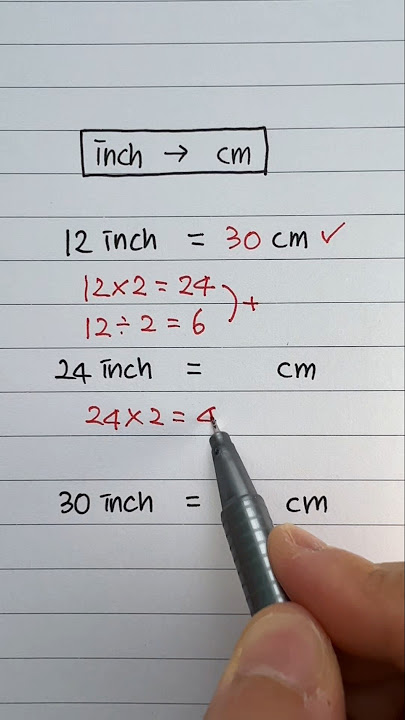 inch → cm
12 inch = 30 cm ✓
12×2=24
12÷2=6 ) +
24 inch = cm
24×2=4
30 inch = cm